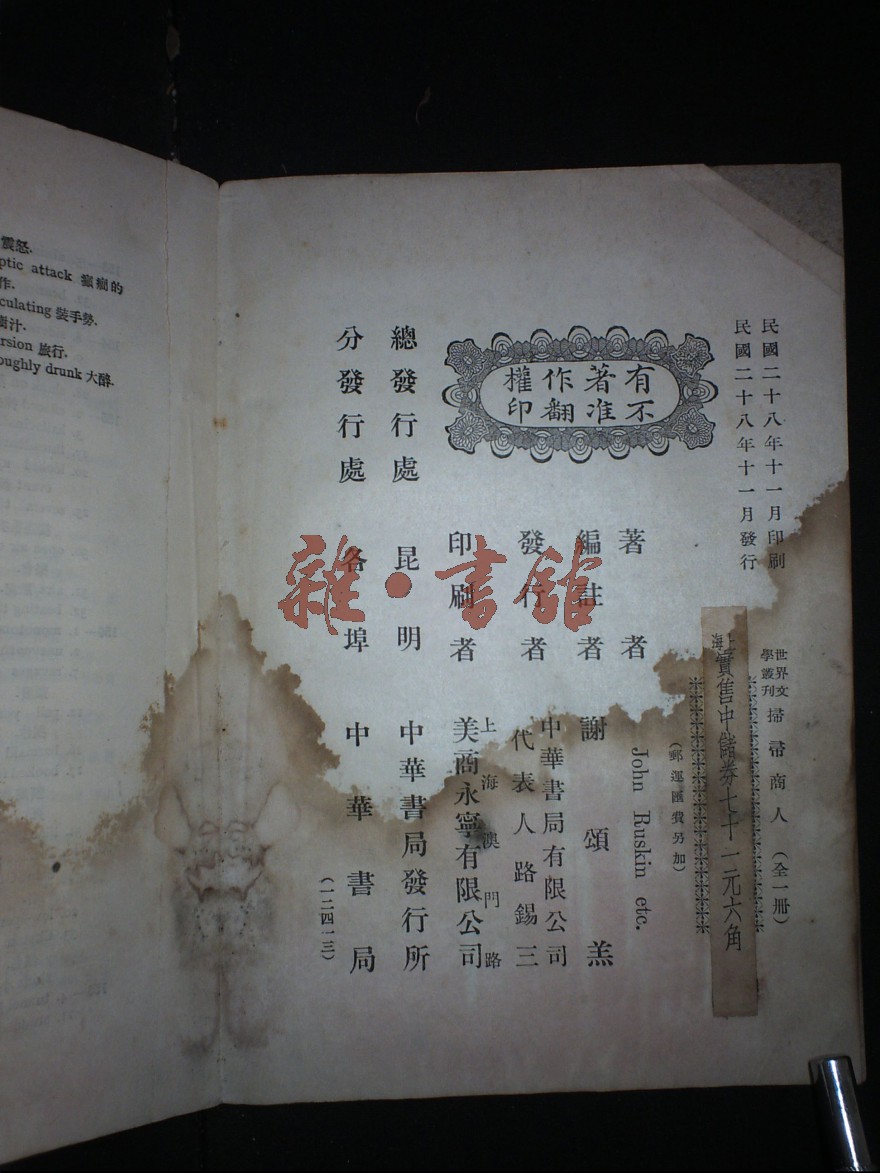 震怒.
ptic attack 癲癇的
作.
culating 裝手勢.
樹汁.
rsion 旅行.
oughly drunk 大醉.
民國二十八年十一月印刷
民國二十八年十一月發行
世界文學叢刊 掃帚商人 (全一冊)
上海實售中儲券七十一元六角
(郵運匯費另加)
有著作權
不准翻印
著者 John Ruskin etc.
編註者 謝頌羔
發行者 中華書局有限公司
代表人路錫三
印刷者 上海澳門路
美商永寧有限公司
總發行處 昆明 中華書局發行所
分發行處 各埠 中華書局
(一二四一三)
雜·書館